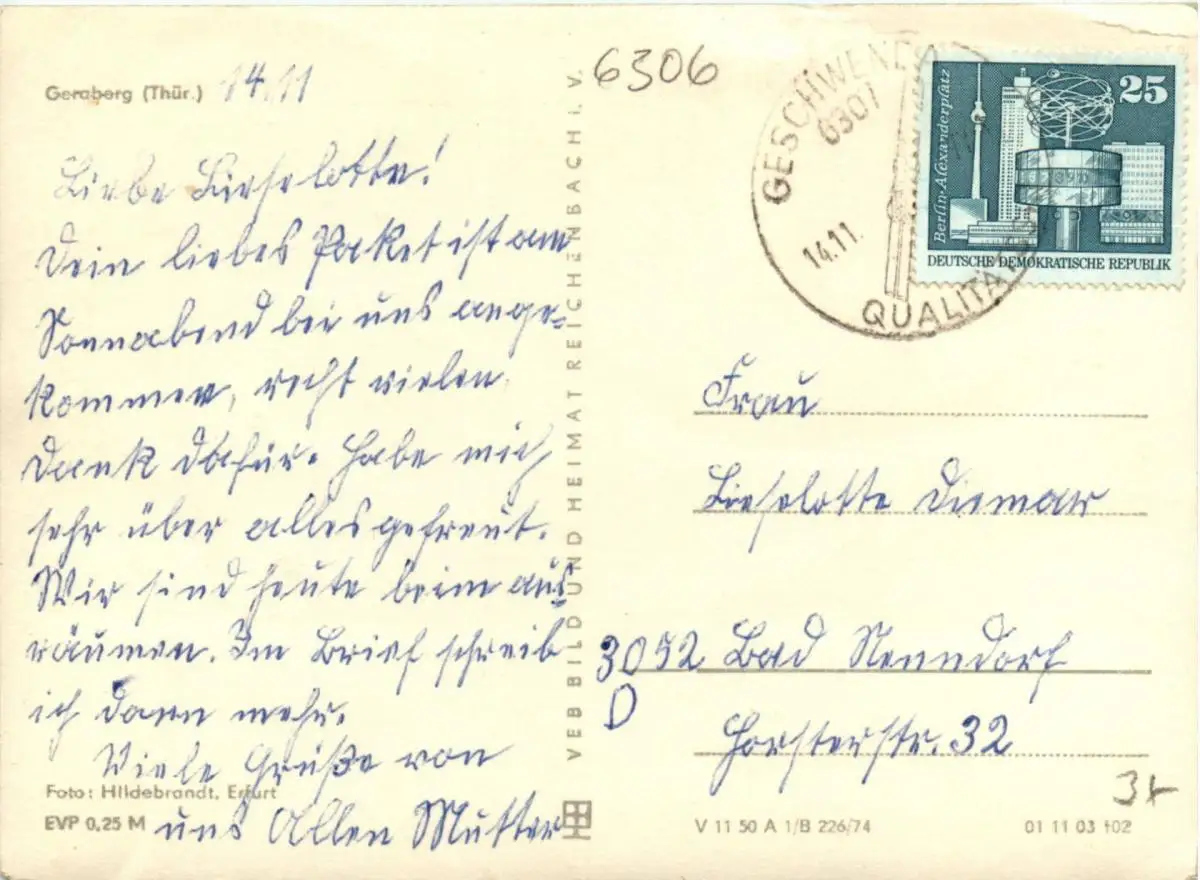 Geraberg (Thür.) 14.11
Liebe Lieselotte!
Dein liebes Paket ist am
Sonnabend bei uns ange-
kommen, recht vielen
Dank dafür. Habe mich
sehr über alles gefreut.
Wir sind heute beim aus-
räumen. Im Brief schreib
ich dann mehr.
Viele Grüße von
Foto: Hildebrandt, Erfurt
EVP 0,25 M
uns Allen Mutter
VEB BILD UND HEIMAT REICHENBACH I. V.
6306
GESCHWEND
6307
14.11.
QUALITÄ
Berlin-Alexanderplatz
25
DEUTSCHE DEMOKRATISCHE REPUBLIK
Frau
Lieselotte Diemar
3052 Bad Nenndorf
D
Horsterstr. 32
V 11 50 A 1/B 226/74
01 11 03 102